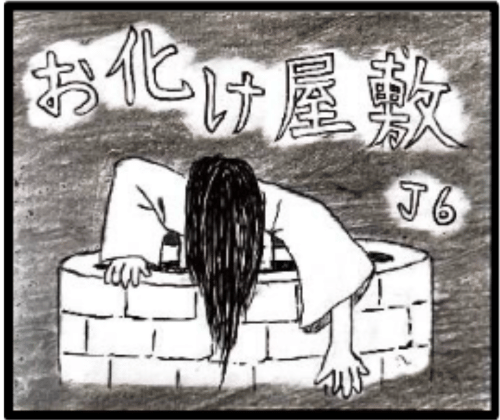 お化け屋敷
J6